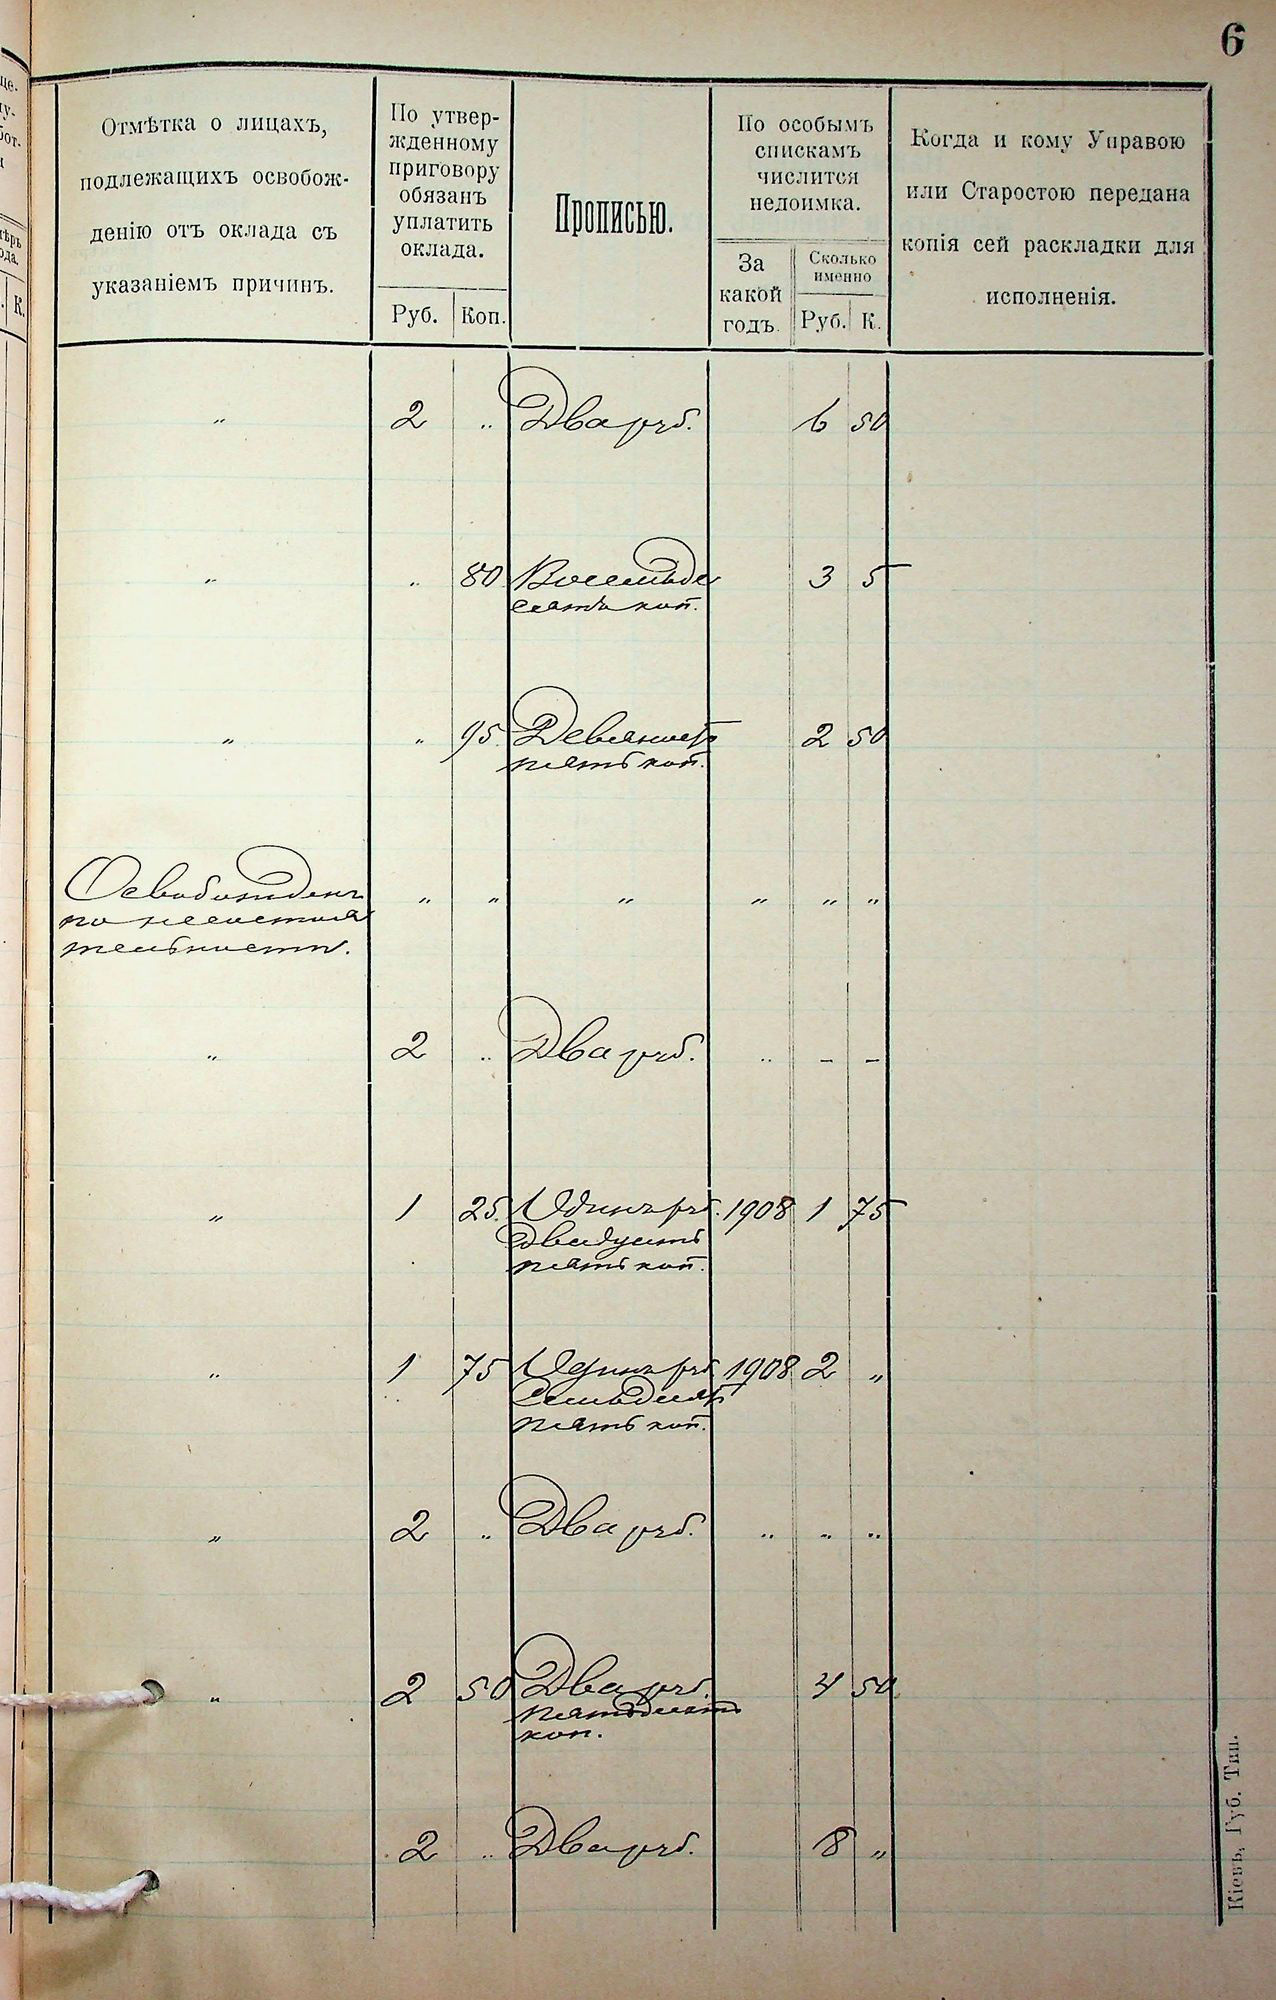 6
Отмѣтка о лицахъ,
подлежащихъ освобож-
денію отъ оклада съ
указаніемъ причинъ.
По утвер-
жденному
приговору
обязанъ
уплатить
оклада.
Руб. Коп.
Прописью.
По особымъ
спискамъ
числится
недоимка.
За
какой
годъ.
Сколько
именно
Руб. К.
Когда и кому Управою
или Старостою передана
копія сей раскладки для
исполненія.
" 2 " Два руб. 6 50
" " 80 Восемьде
сятъ коп. 3 5
" " 95 Девяносто
пять коп. 2 50
Освобожденъ
по несостоя
тельности. " " " " " "
" 2 " Два руб. " - -
" 1 25 Одинъ руб. 1908 1 75
двадцать
пять коп.
" 1 75 Одинъ руб. 1908 2 "
Семьдесят
пять коп.
" 2 " Два руб. " " "
" 2 50 Два руб. 4 50
пятьдесятъ
коп.
2 " Два руб. 8 "
Кіевъ, Губ. Тип.
це-
К.